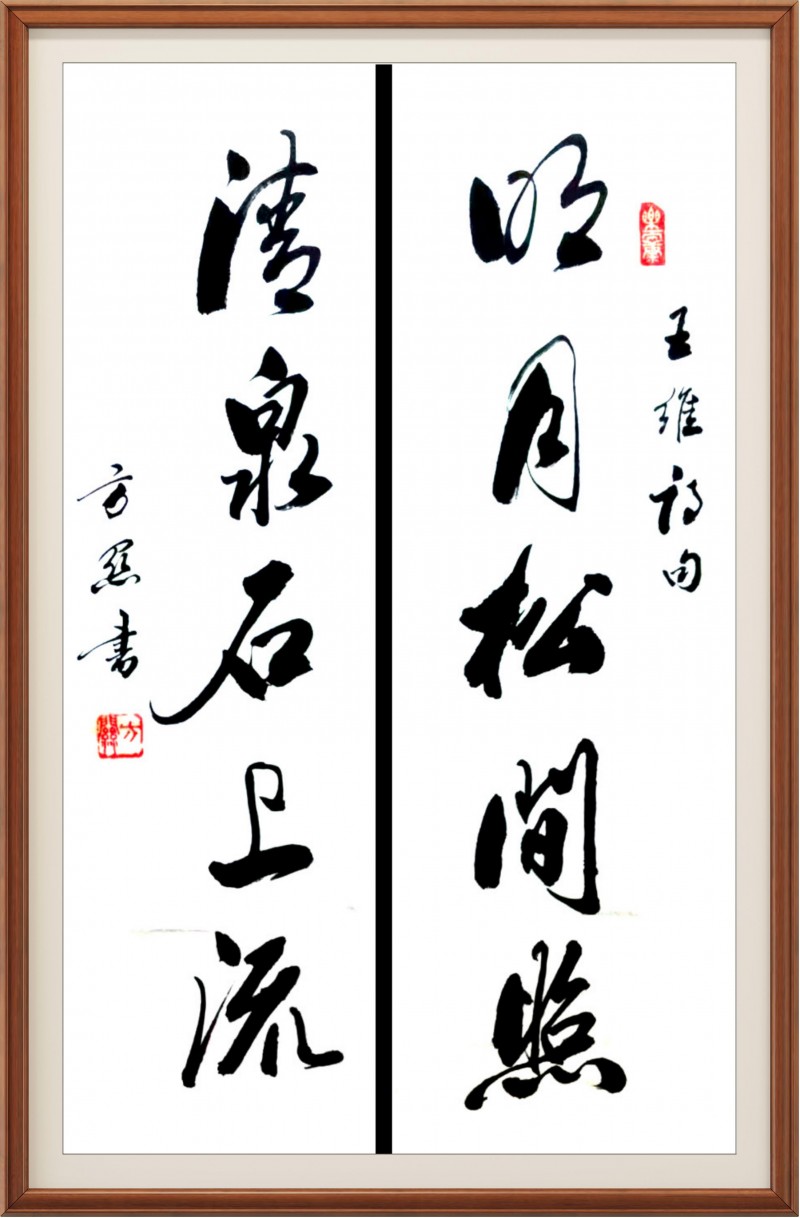 王維詩句
明月松間照
清泉石上流
方照书